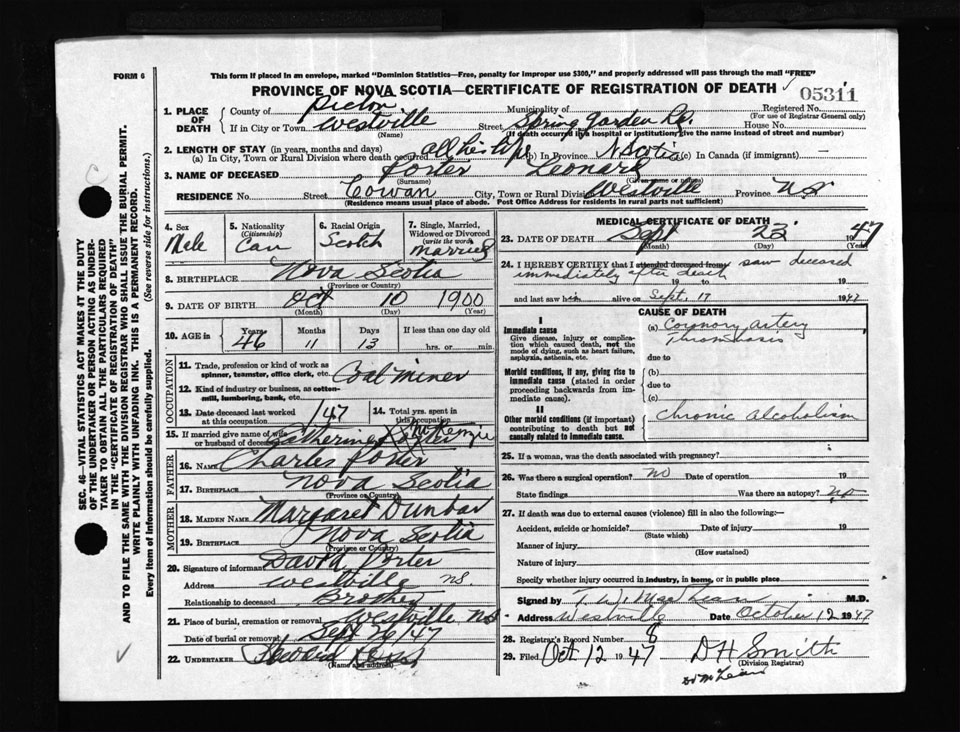 FORM 6
This form if placed in an envelope, marked "Dominion Statistics—Free, penalty for improper use $300," and properly addressed will pass through the mail "FREE"
PROVINCE OF NOVA SCOTIA—CERTIFICATE OF REGISTRATION OF DEATH
05311
SEC. 46—VITAL STATISTICS ACT MAKES AT THE DUTY
OF THE UNDERTAKER OR PERSON ACTING AS UNDER-
TAKER TO OBTAIN ALL THE PARTICULARS REQUIRED
IN THE "CERTIFICATE OF REGISTRATION OF DEATH"
AND TO FILE THE SAME WITH THE DIVISION REGISTRAR WHO SHALL ISSUE THE BURIAL PERMIT.
WRITE PLAINLY WITH UNFADING INK. THIS IS A PERMANENT RECORD.
Every item of Information should be carefully supplied. (See reverse side for instructions.)
1. PLACE OF DEATH
County of Pictou Municipality of Registered No.
(For use of Registrar General only)
If in City or Town Westville Street Spring Garden Rd. House No.
(Name) (If death occurred in a hospital or institution, give the name instead of street and number)
2. LENGTH OF STAY (in years, months and days)
(a) In City, Town or Rural Division where death occurred All his life (b) In Province N Scotia (c) In Canada (if immigrant) —
3. NAME OF DECEASED Foster Leonard
(Surname) (Given name or names)
RESIDENCE No. Street Cowan City, Town or Rural Division Westville Province N S
(Residence means usual place of abode. Post Office Address for residents in rural parts not sufficient)
4. Sex Male
5. Nationality (Citizenship) Can
6. Racial Origin Scotch
7. Single, Married, Widowed or Divorced (write the word) Married
8. BIRTHPLACE Nova Scotia
(Province or Country)
9. DATE OF BIRTH Oct 10 1900
(Month) (Day) (Year)
10. AGE in Years 46 Months 11 Days 13 If less than one day old hrs. or min.
OCCUPATION
11. Trade, profession or kind of work as spinner, teamster, office clerk, etc. Coal miner
12. Kind of industry or business, as cotton-mill, lumbering, bank, etc.
13. Date deceased last worked at this occupation /47
14. Total yrs. spent in this occupation
15. If married give name of wife or husband of deceased Catherine McKenzie
FATHER
16. NAME Charles Foster
17. BIRTHPLACE Nova Scotia
(Province or Country)
MOTHER
18. MAIDEN NAME Margaret Dunbar
19. BIRTHPLACE Nova Scotia
(Province or Country)
20. Signature of informant David Foster
Address Westville NS
Relationship to deceased Brother
21. Place of burial, cremation or removal Westville NS
Date of burial or removal Sept 26/47
22. UNDERTAKER
(Name and address)
MEDICAL CERTIFICATE OF DEATH
23. DATE OF DEATH Sept 23 1947
(Month) (Day) (Year)
24. I HEREBY CERTIFY that I attended deceased from saw deceased
immediately after death 19 to 19
and last saw him alive on Sept. 17 1947
CAUSE OF DEATH
I
Immediate cause
Give disease, injury or complication which caused death, not the mode of dying, such as heart failure, asphyxia, asthenia, etc.
(a) Coronory artery
Thrombosis
due to
Morbid conditions, if any, giving rise to immediate cause (stated in order proceeding backwards from immediate cause).
(b)
due to
(c)
II
Other morbid conditions (if important) contributing to death but not causally related to immediate cause.
Chronic alcoholism
25. If a woman, was the death associated with pregnancy?
26. Was there a surgical operation? No Date of operation 19
State findings Was there autopsy? No
27. If death was due to external causes (violence) fill in also the following:—
Accident, suicide or homicide? Date of injury 19
(State which)
Manner of injury
(How sustained)
Nature of injury
Specify whether injury occurred in industry, in home, or in public place
Signed by T. W. MacLean M.D.
Address Westville Date October 12 1947
28. Registrar's Record Number 8
29. Filed Oct 12 1947 D H Smith
(Division Registrar)